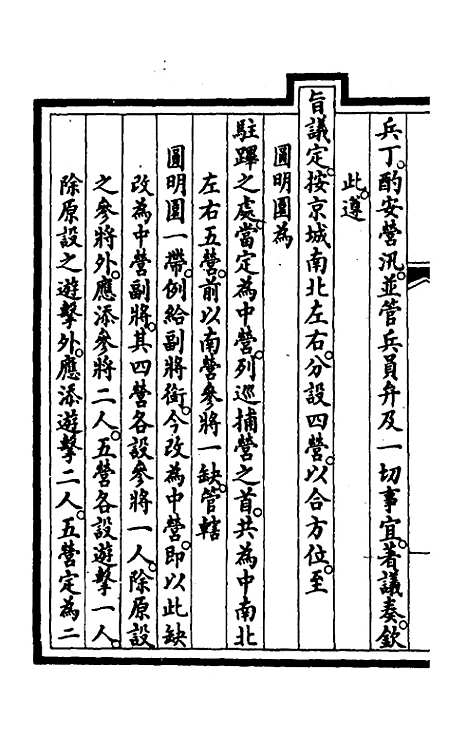 兵丁。酌安營汛。並管兵員弁及一切事宜。著議奏。欽
此。遵
旨議定。按京城南北左右。分設四營。以合方位。至
圓明園為
駐蹕之處。當定為中營。列巡捕營之首。共為中南北
左右五營。前以南營參將一缺。管轄
圓明園一帶。例給副將銜。今改為中營。即以此缺
改為中營副將。其四營各設參將一人。除原設
之參將外。應添參將二人。五營各設遊擊一人。
除原設之遊擊外。應添遊擊二人。五營定為二